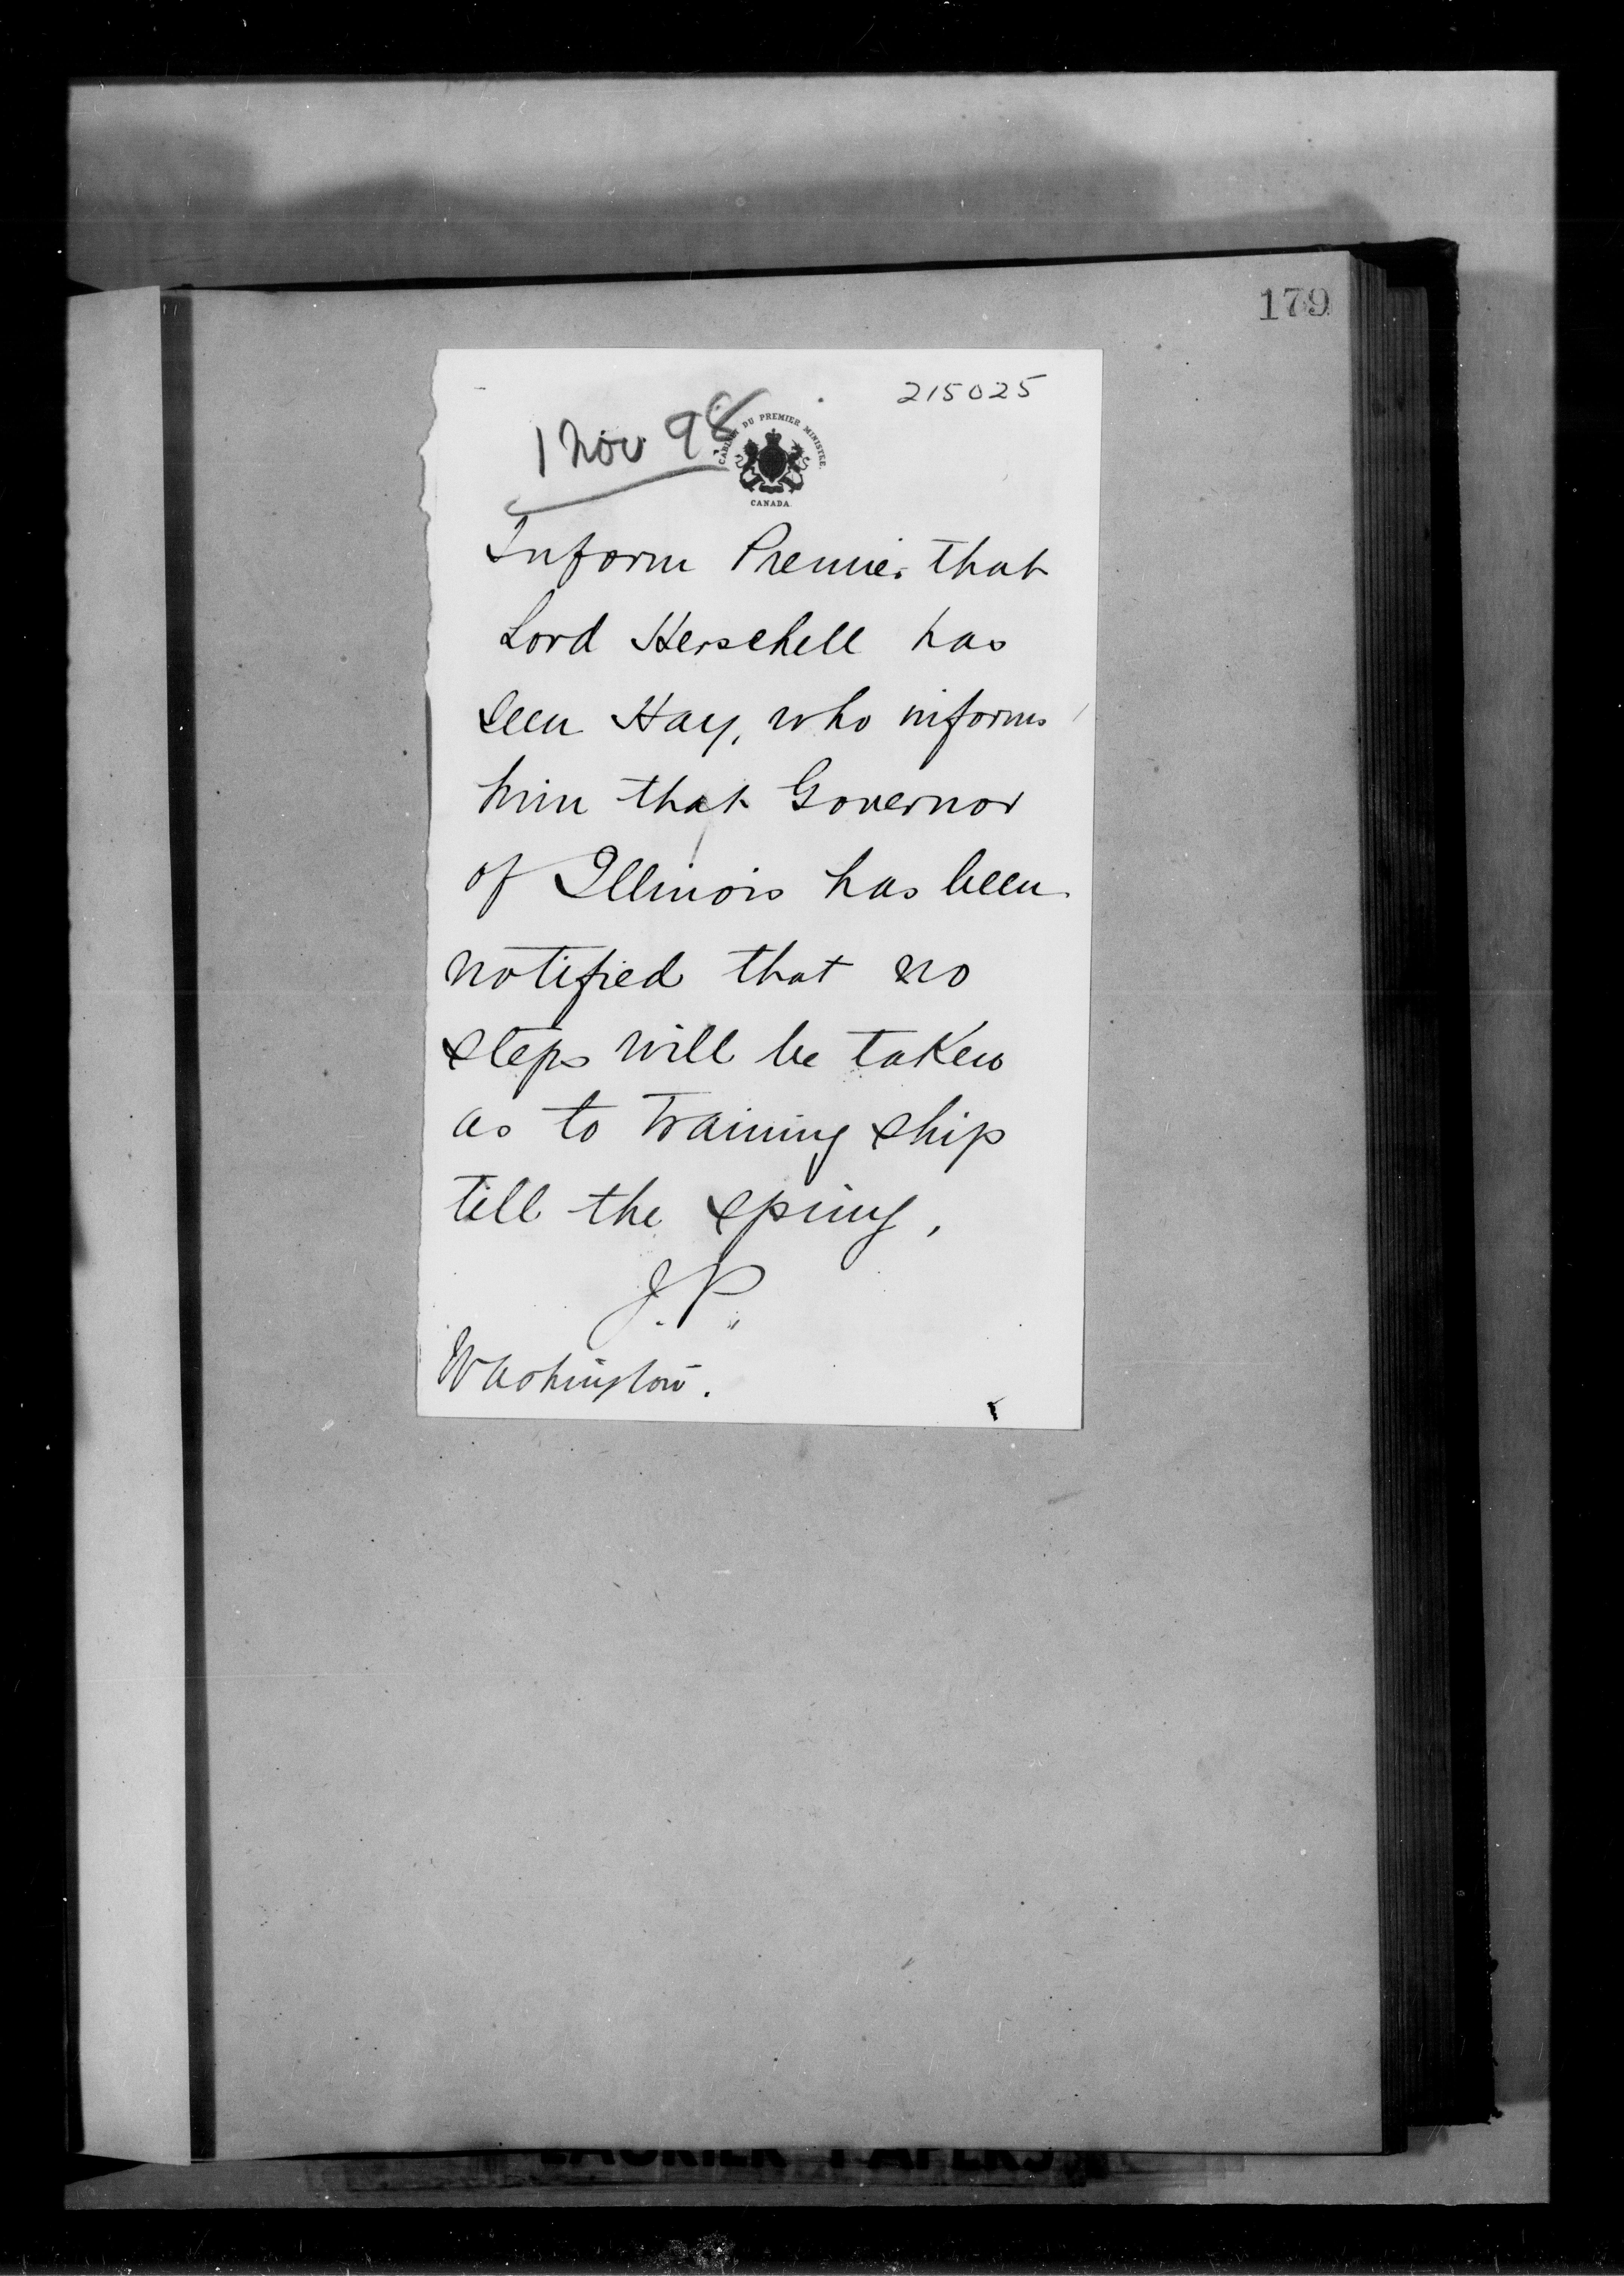 179
215025
1 Nov 98
CABINET DU PREMIER MINISTRE.
CANADA.
Inform Premier that
Lord Herschell has
seen Hay, who informs
him that Governor
of Illinois has been
notified that no
steps will be taken
as to Training ship
till the spring,
J. P.
Washington.
LAURIER PAPERS